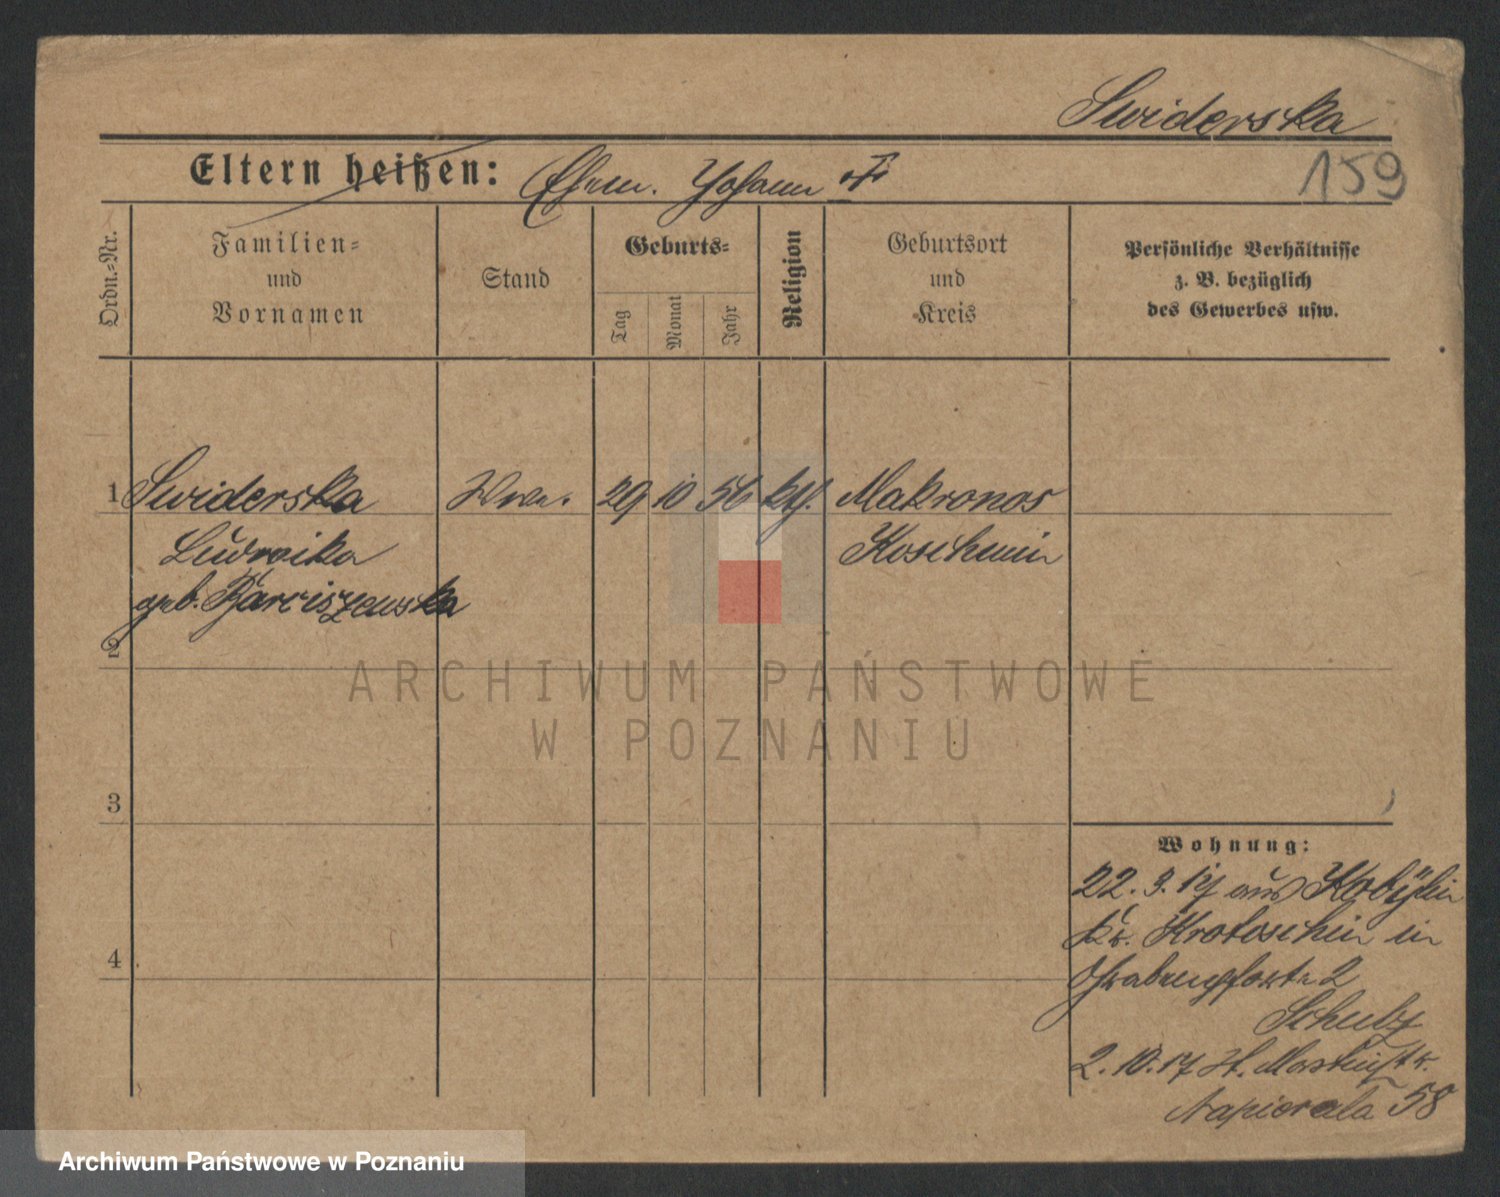 Swiderska
Eltern heißen: Ehem. Johann †
159
Ordn.-Nr.
Familien-
und
Vornamen
Stand
Geburts-
Tag
Monat
Jahr
Religion
Geburtsort
und
Kreis
Persönliche Verhältnisse
z. B. bezüglich
des Gewerbes usw.
1 Swiderska Wwe. 29 10 56 kth. Makronos
Ludwika Koschmin
geb.
2
3
4
Wohnung:
22. 3. 17 aus Kobylin
Kr. Krotoschin in
Grabenpforte 2
Schulz
2. 10. 17 St. Martinstr.
Napierala 58
ARCHIWUM PAŃSTWOWE
W POZNANIU
Archiwum Państwowe w Poznaniu